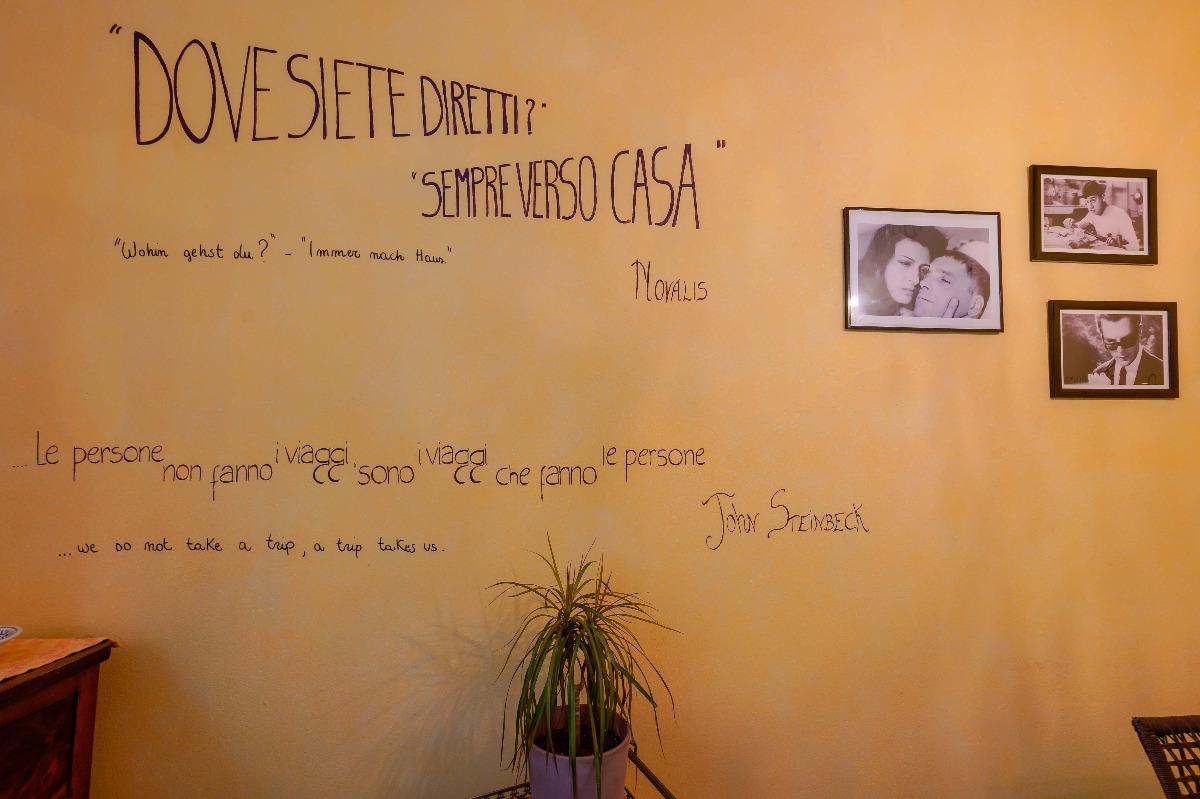 "DOVE SIETE DIRETTI?"
"SEMPRE VERSO CASA"
"Wohin gehst du?" - "Immer nach Haus."
NOVALIS
.... Le persone non fanno i viaggi, sono i viaggi che fanno le persone
JOHN STEINBECK
... we do not take a trip, a trip takes us.